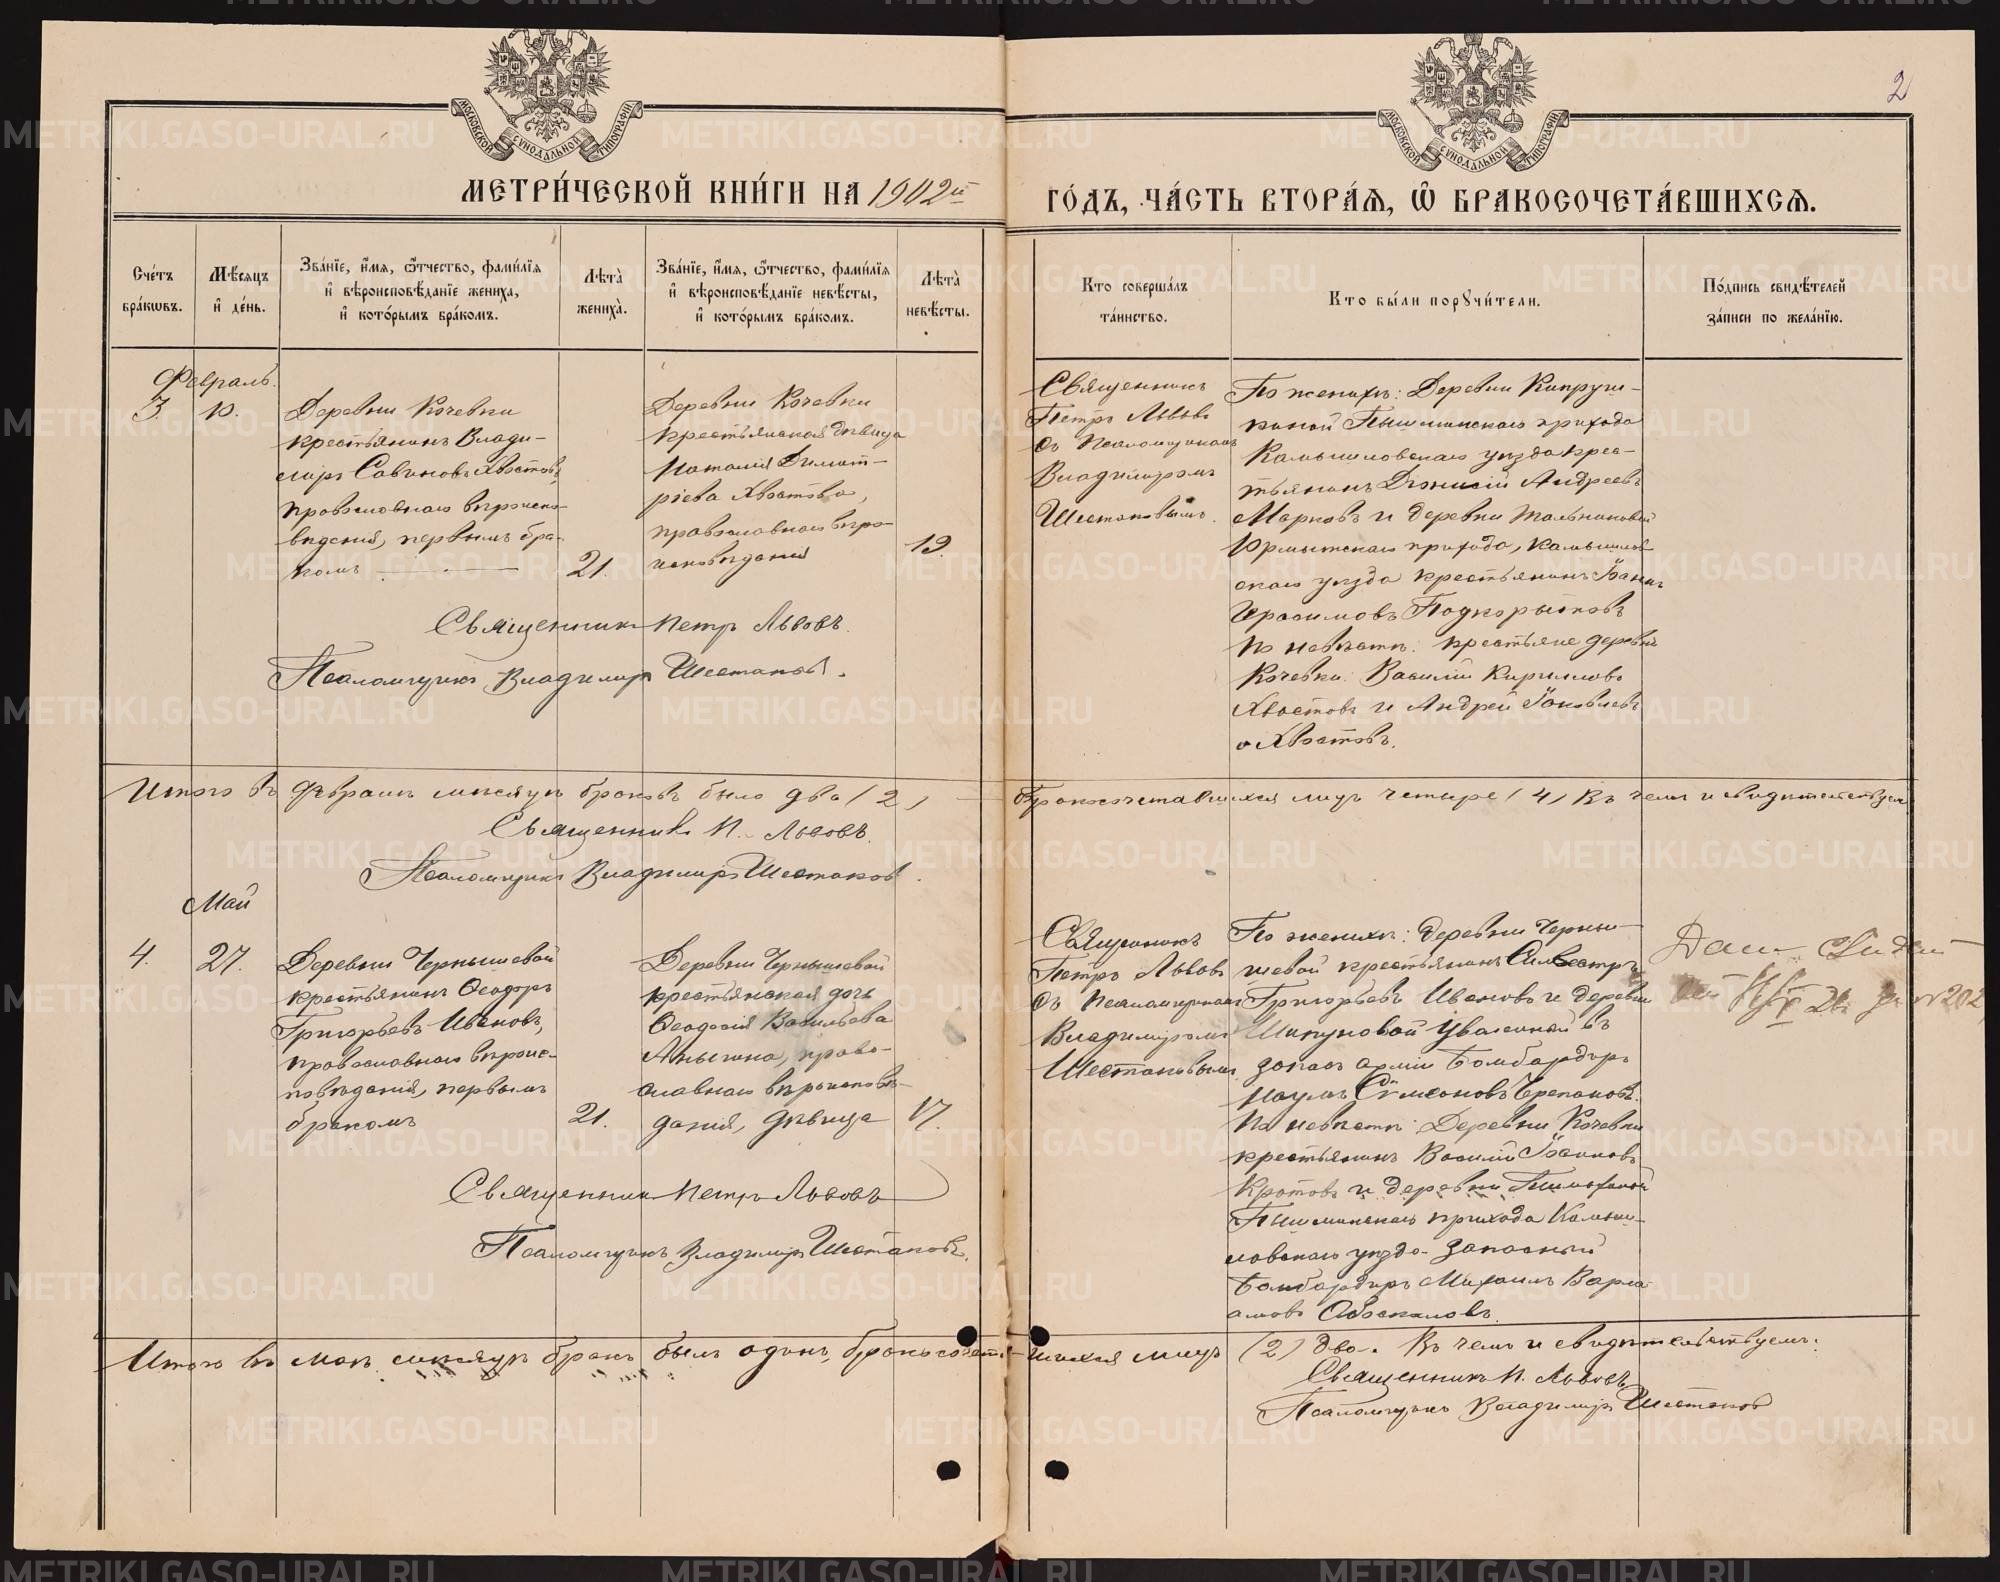 2
МОСКОВСКОЙ СѴНОДАЛЬНОЙ ТИПОГРАФИИ
МОСКОВСКОЙ СѴНОДАЛЬНОЙ ТИПОГРАФИИ
МЕТРИ́ЧЕСКОЙ КНИ́ГИ НА 1902й
ГО́ДЪ, ЧА́СТЬ ВТОРА́Ѧ, Ѡ҆ БРАКОСОЧЕТА́ВШИХСѦ.
Сче́тъ
бра́кѡвъ.
Мѣ́сяцъ
и҆ де́нь.
Зва́нїе, и҆́мя, ѻ҆́тчество, фами́лїя
и҆ вѣроисповѣ́данїе жениха̀,
и҆ кото́рымъ бра́комъ.
Лѣта̀
жениха̀.
Зва́нїе, и҆́мя, ѻ҆́тчество, фами́лїя
и҆ вѣроисповѣ́данїе невѣ́сты,
и҆ кото́рымъ бра́комъ.
Лѣта̀
невѣ́сты.
Кто соверша́лъ
та́инство.
Кто бы́ли порꙋчи́тели.
По́дпись свидѣ́телей
за́писи по жела́нїю.
Февраль.
3. 10.
Деревни Кочевки
крестьянинъ Влади-
миръ Савиновъ Хвостовъ,
православнаго вѣроиспо-
вѣданія, первымъ бра-
комъ
21.
Деревни Кочевки
крестьянская дѣвица
Наталія Димит-
ріева Хвостова,
православнаго вѣро-
исповѣданія
19.
Священникъ
Петръ Львовъ
съ Псаломщикомъ
Владиміромъ
Шестаковымъ.
По женихѣ: Деревни
Пышминскаго прихода
Камышловскаго уѣзда крес-
тьянинъ Діонисій Андреевъ
Марковъ и деревни
прихода, Камышлов-
скаго уѣзда крестьянинъ Іоаннъ
Герасимовъ Подкорытовъ
По невѣстѣ: крестьяне деревни
Кочевки Василій Кирилловъ
Хвостовъ и Андрей Іаковлевъ
Хвостовъ.
Священникъ Петръ Львовъ.
Псаломщикъ Владиміръ Шестаковъ.
Итого въ февралѣ мѣсяцѣ браковъ было два (2)
бракосочетавшихся лицъ четыре (4) Въ чемъ и свидѣтельствуемъ
Священникъ П. Львовъ.
Псаломщикъ Владиміръ Шестаковъ.
Май
4. 27.
Деревни Чернышевой
крестьянинъ Ѳеодоръ
Григорьевъ Ивановъ,
православнаго вѣроис-
повѣданія, первымъ
бракомъ
21.
Деревни Чернышевой
крестьянская дочь
Ѳеодосія Васильева
право-
славнаго вѣроисповѣ-
данія, дѣвица
17.
Священникъ
Петръ Львовъ
съ Псаломщикомъ
Владиміромъ
Шестаковымъ
По женихѣ: деревни Черны-
шевой крестьянинъ Сильвестръ
Григорьевъ Ивановъ и деревни
Шипуновой уволенный въ
запасъ арміи бомбардиръ
Наумъ Сѵмеоновъ Черепановъ.
По невѣстѣ: Деревни Кочевки
крестьянинъ Василій Іоанновъ
Кротовъ и деревни
Пышминскаго прихода Камыш-
ловскаго уѣзда запасный
бомбардиръ Михаилъ Варла-
амовъ
Священникъ Петръ Львовъ
Псаломщикъ Владиміръ Шестаковъ.
Итого въ маѣ мѣсяцѣ бракъ былъ одинъ, бракосочетав-
шихся лицъ (2) два. Въ чемъ и свидѣтельствуемъ:
Священникъ П. Львовъ
Псаломщикъ Владиміръ Шестаковъ
METRIKI.GASO-URAL.RU